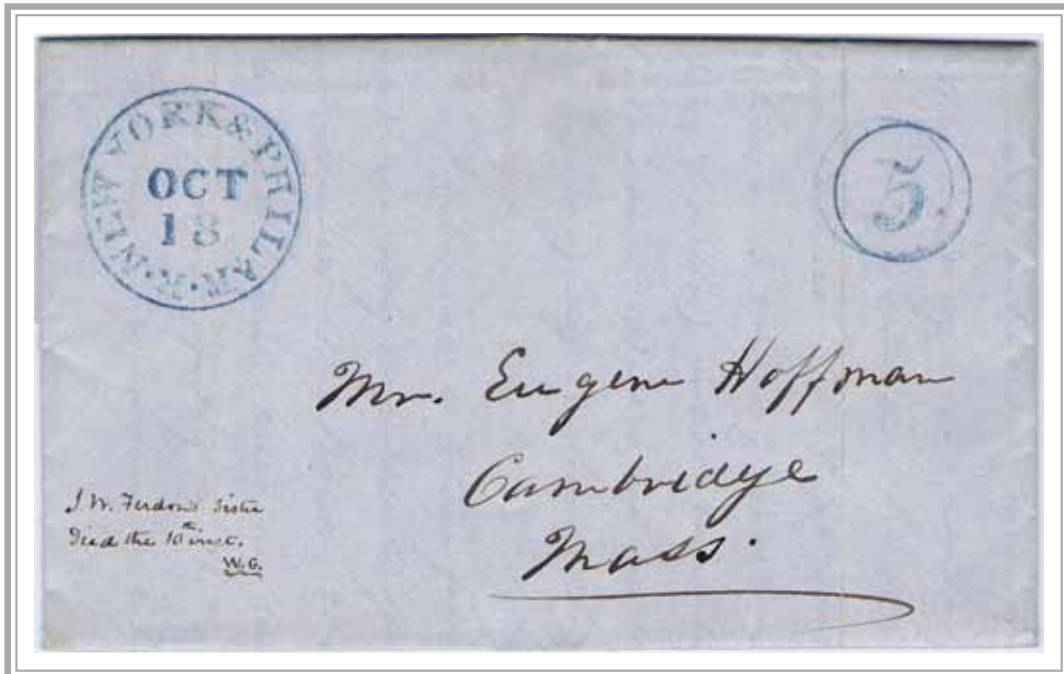 NEW YORK & PHILA R. R.
OCT
18
5
Mr. Eugene Hoffman
Cambridge
Mass.
J. W. Ferdon's Sister
Died the 10th inst.
W. G.